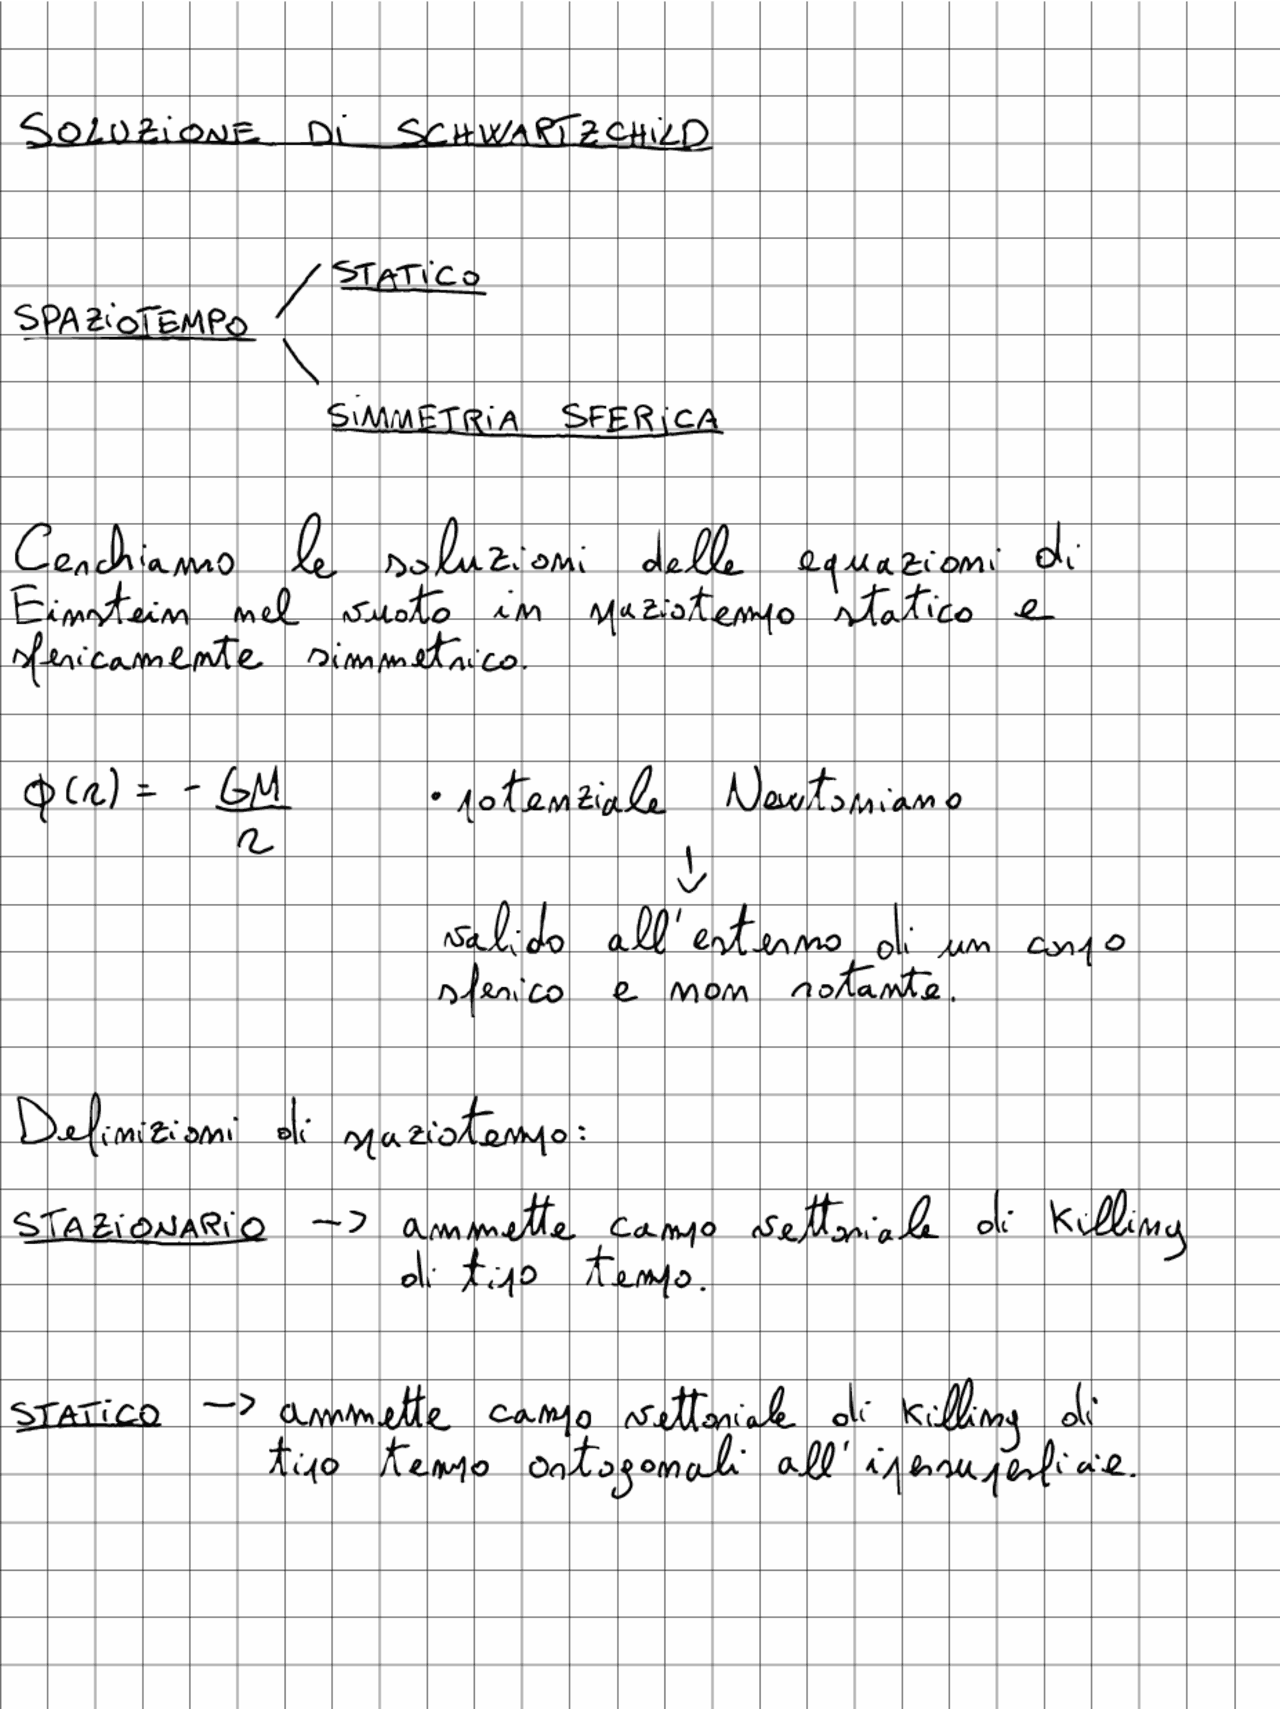 SOLUZIONE DI SCHWARTZCHILD
STATICO
SPAZIOTEMPO
SIMMETRIA SFERICA
Cerchiamo le soluzioni delle equazioni di
Einstein nel vuoto in spaziotempo statico e
sfericamente simmetrico.
ϕ(r) = - GM/r • potenziale Newtoniano
↓
valido all'esterno di un corpo
sferico e non rotante.
Definizioni di spaziotempo:
STAZIONARIO -> ammette campo vettoriale di Killing
di tipo tempo.
STATICO -> ammette campo vettoriale di Killing di
tipo tempo ortogonali all'ipersuperficie.